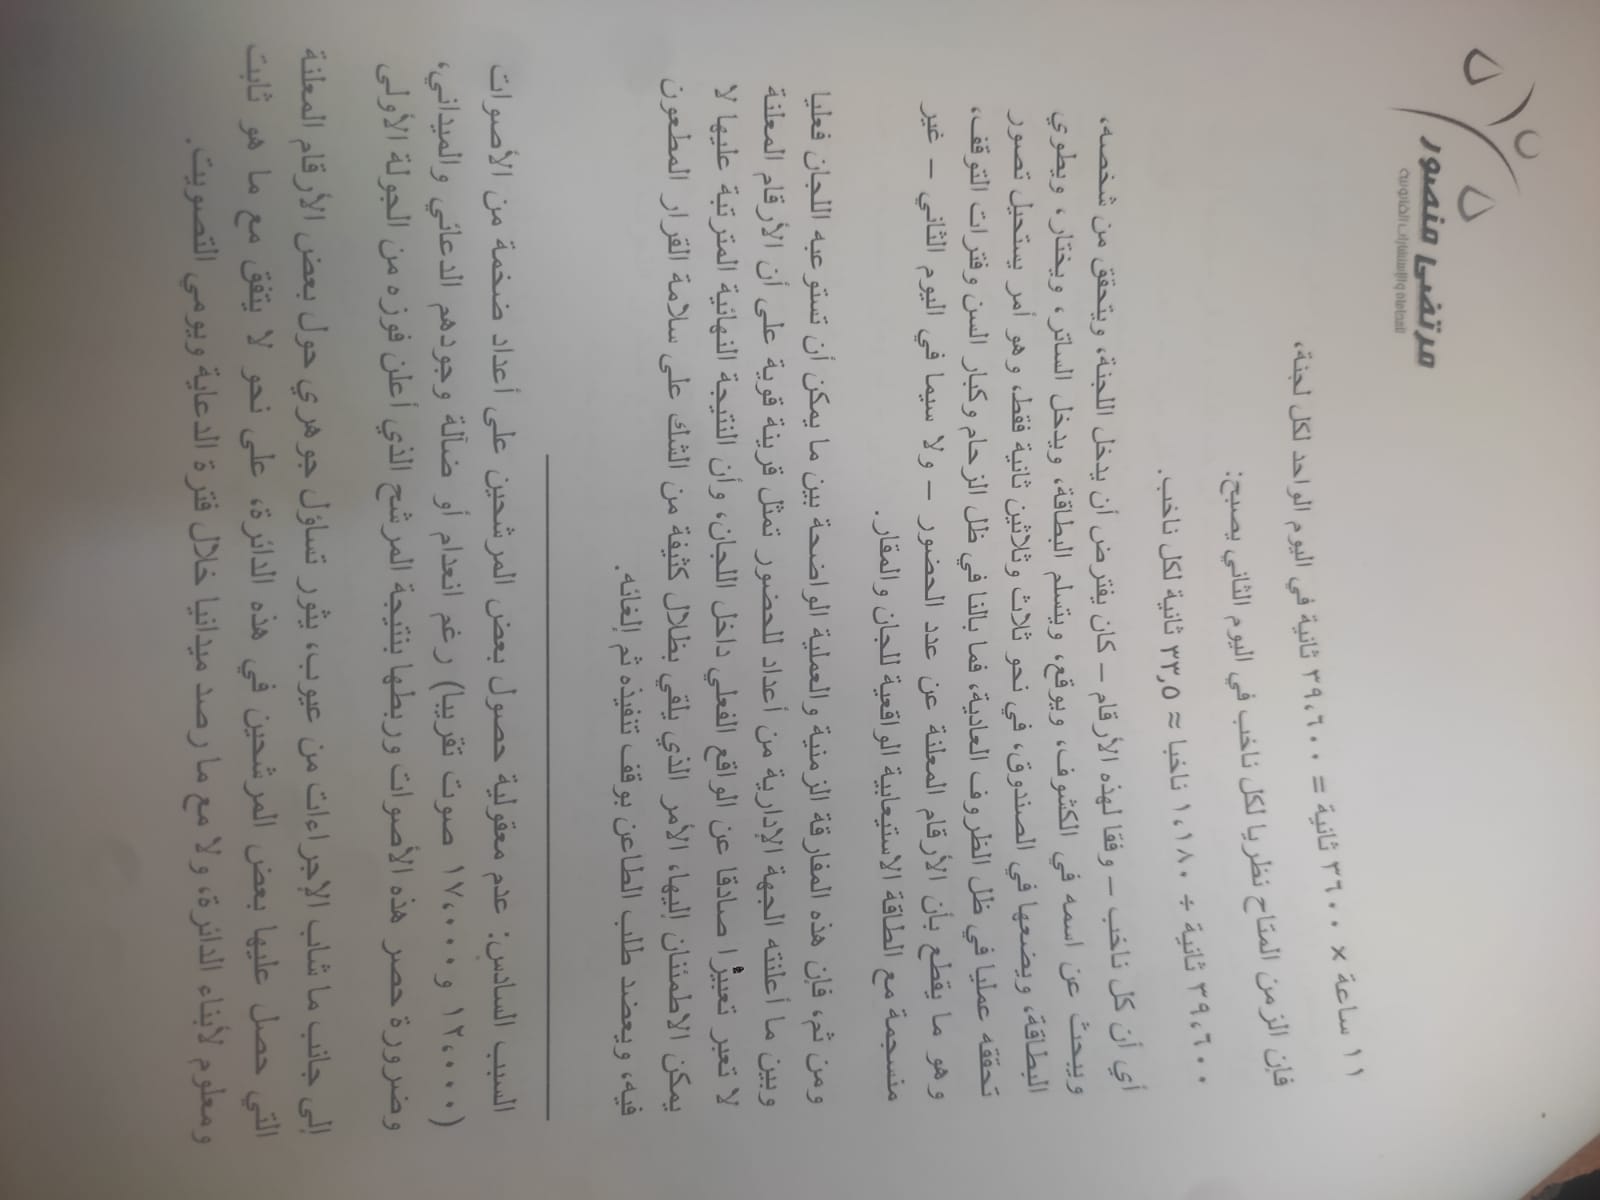 مرتضى منصور
للمحاماه والإستشارات القانونية
١١ ساعة × ٣٦٠٠ ثانية = ٣٩,٦٠٠ ثانية في اليوم الواحد لكل لجنة،
فإن الزمن المتاح نظريا لكل ناخب في اليوم الثاني يصبح:
٣٩,٦٠٠ ثانية ÷ ١,١٨٠ ناخبا ≈ ٣٣,٥ ثانية لكل ناخب.
أي أن كل ناخب – وفقا لهذه الأرقام – كان يفترض أن يدخل اللجنة، ويتحقق من شخصه،
ويبحث عن اسمه في الكشوف، ويوقع، ويتسلم البطاقة، ويدخل الساتر، ويختار، ويطوي
البطاقة، ويضعها في الصندوق، في نحو ثلاث وثلاثين ثانية فقط، وهو أمر يستحيل تصور
تحققه عمليا في ظل الظروف العادية، فما بالنا في ظل الزحام وكبار السن وفترات التوقف،
وهو ما يقطع بأن الأرقام المعلنة عن عدد الحضور – ولا سيما في اليوم الثاني – غير
منسجمة مع الطاقة الاستيعابية الواقعية للجان والمقار.
ومن ثم، فإن هذه المفارقة الزمنية والعملية الواضحة بين ما يمكن أن تستوعبه اللجان فعليا
وبين ما أعلنته الجهة الإدارية من أعداد للحضور تمثل قرينة قوية على أن الأرقام المعلنة
لا تعبر تعبيرا صادقا عن الواقع الفعلي داخل اللجان، وأن النتيجة النهائية المترتبة عليها لا
يمكن الاطمئنان إليها، الأمر الذي يلقي بظلال كثيفة من الشك على سلامة القرار المطعون
فيه، ويعضد طلب الطاعن بوقف تنفيذه ثم إلغائه.
السبب السادس: عدم معقولية حصول بعض المرشحين على أعداد ضخمة من الأصوات
(١٢,٠٠٠ و ١٧,٠٠٠ صوت تقريبا) رغم انعدام أو ضآلة وجودهم الدعائي والميداني،
وضرورة حصر هذه الأصوات وربطها بنتيجة المرشح الذي أعلن فوزه من الجولة الأولى
إلى جانب ما شاب الإجراءات من عيوب، يثور تساؤل جوهري حول بعض الأرقام المعلنة
التي حصل عليها بعض المرشحين في هذه الدائرة، على نحو لا يتفق مع ما هو ثابت
ومعلوم لأبناء الدائرة، ولا مع ما رصد ميدانيا خلال فترة الدعاية ويومي التصويت.